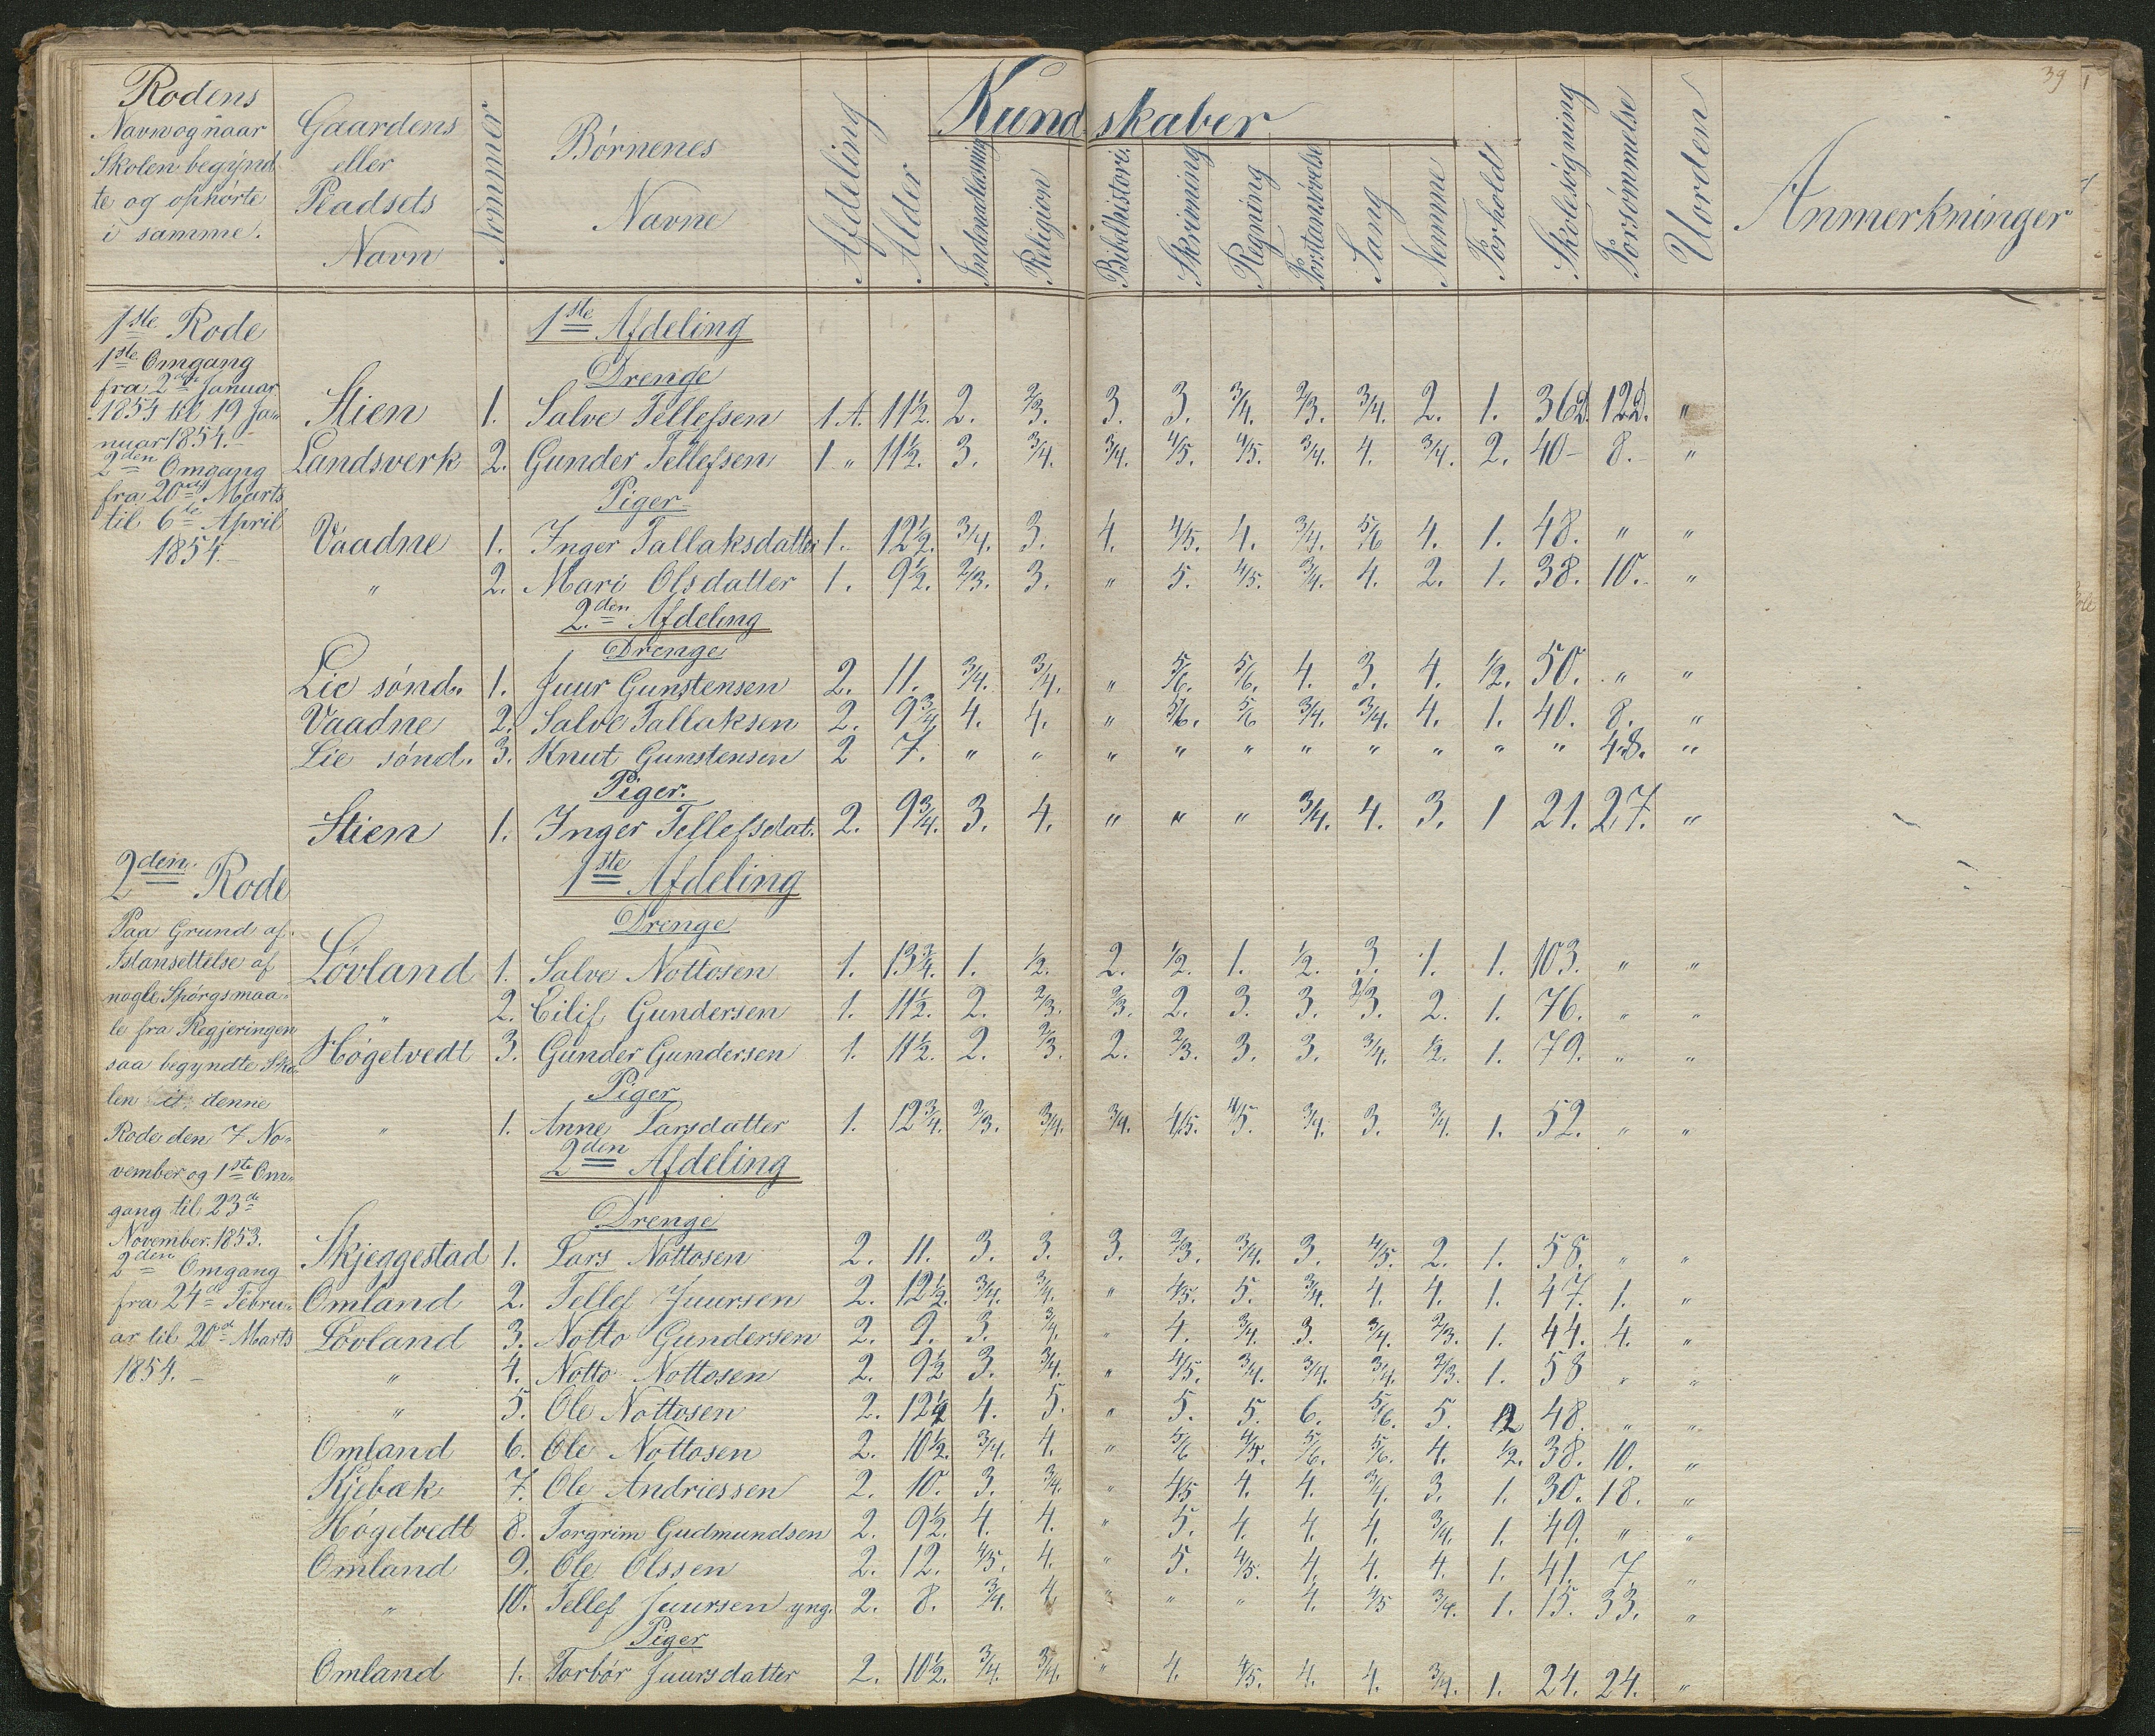 39
Rodens
Navn og naar
Skolen begynd-
te og ophørte
i samme.
Gaardens
eller
Pladsets
Navn
Nommer
Børnenes
Navne
Afdeling
Alder
Kundskaber
Indenadlæsning
Religion
Bibelhistorie
Skrivning
Regning
Forstandsøvelse
Sang
Nemme
Forhold
Skolesøgning
Forsømmelse
Uorden
Anmerkninger
1ste Rode
1ste Omgang
fra 2den Januar
1854 til 19 Ja-
nuar 1854.
2den Omgang
fra 20de Marts
til 6te April
1854.
1ste Afdeling
Drenge
Stien 1. Salve Tellefsen 1 A. 11½. 2. 2/3. 3. 3. 3/4. 2/3. 3/4. 2. 1. 36d. 12d. "
Landsverk 2. Gunder Tellefsen 1 " 11½. 3. 3/4. 3/4. 4/5. 4/5. 3/4. 4. 3/4. 2. 40 8. "
Piger
Vaadne 1. Inger Tallaksdatter 1. 12½. 3/4. 3. 4. 4/5. 4. 3/4. 5/6 4. 1. 48. " "
" 2. Mari Olsdatter 1. 9½. 2/3. 3. " 5. 4/5. 3/4. 4. 2. 1. 38. 10. "
2den Afdeling
Drenge
Lie sønd. 1. Juur Gunstensen 2. 11. 3/4. 3/4. " 5/6. 5/6. 4. 3. 4. 1/2. 50. " "
Vaadne 2. Salve Tallaksen 2. 9¾ 4. 4. " 5/6. 5/6 3/4. 3/4. 4. 1. 40. 8. "
Lie sønd. 3. Knut Gunstensen 2 7. " " " " " " " " " " 48. "
Piger.
Stien 1. Inger Tellefsdat. 2. 9¾. 3. 4. " " " 3/4. 4. 3. 1 21. 27. "
2den Rode
Paa Grund af
Istansettelse af
nogle Spørgsmaa-
le fra Regjeringen
saa begyndte Sko-
len i denne
Rode den 7 No-
vember og 1ste Om-
gang til 23de
November 1853.
2den Omgang
fra 24de Febru-
ar til 20de Marts
1854.
1ste Afdeling
Drenge
Løvland 1. Salve Nottosen 1. 13¾. 1. 1/2. 2. 1/2. 1. 1/2. 3. 1. 1. 103. " "
" 2. Eilif Gundersen 1. 11½. 2. 2/3. 2/3. 2. 3. 3. 2/3. 2. 1. 76. " "
Høgetvedt 3. Gunder Gundersen 1. 11½. 2. 2/3. 2. 2/3. 3. 3. 3/4. 1/2. 1. 79. " "
Piger
" 1. Anne Larsdatter 1. 12¾. 2/3. 3/4. 3/4. 4/5. 4/5. 3/4. 3. 3/4. 1. 52. " "
2den Afdeling
Drenge
Skjeggestad 1. Lars Nottosen 2. 11. 3. 3. 3. 2/3. 3/4. 3. 4/5. 2. 1. 58. " "
Omland 2. Tellef Juursen 2. 12½. 3/4. 3/4. " 4/5. 5. 3/4. 4. 4. 1. 47. 1. "
Løvland 3. Notto Gundersen 2. 9. 3. 3/4. " 4. 3/4. 3. 3/4. 2/3. 1. 44. 4. "
" 4. Notto Nottosen 2. 9½ 3. 3/4. " 4/5. 3/4. 3/4. 3/4. 2/3. 1. 58 " "
" 5. Ole Nottosen 2. 12½ 4. 5. " 5. 5. 6. 5/6. 5. 2 48. " "
Omland 6. Ole Nottosen 2. 10½. 3/4. 4. " 5/6 4/5. 5/6. 5/6. 4. 1/2. 38. 10. "
Kjebæk 7. Ole Andriessen 2. 10. 3. 3/4. " 4/5 4. 4. 3/4. 3. 1. 30. 18. "
Høgetvedt 8. Torgrim Gudmundsen 2. 9½. 4. 4. " 5. 4. 4. 4. 3/4. 1. 49. " "
Omland 9. Ole Olssen 2. 12. 4/5. 4. " 5. 4/5. 4. 4. 4. 1. 41. 7 "
" 10. Tellef Juursen yng. 2. 8. 3/4. 4 " " " 4. 4/5 3/4. 1. 15. 33. "
Piger
Omland 1. Torbør Juursdatter 2. 10½. 3/4. 3/4. " 4. 4/5. 4. 4. 3/4. 1. 24. 24. "